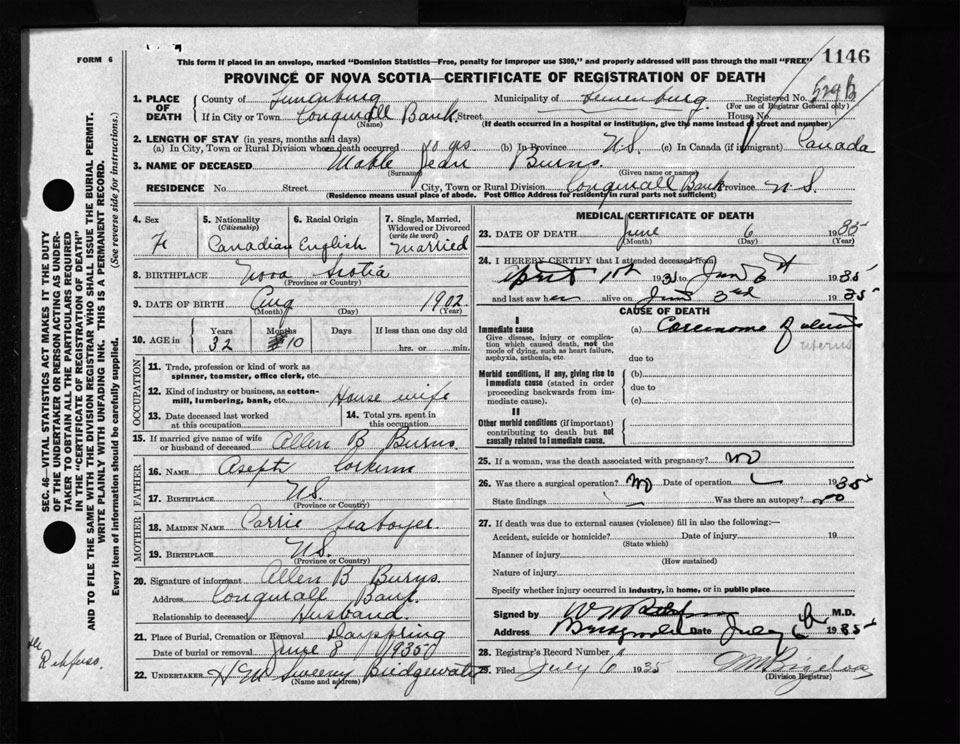 FORM 6
This form if placed in an envelope, marked "Dominion Statistics—Free, penalty for improper use $300," and properly addressed will pass through the mail "FREE"
1146
PROVINCE OF NOVA SCOTIA—CERTIFICATE OF REGISTRATION OF DEATH
1. PLACE OF DEATH
County of Lunenburg Municipality of Lunenburg Registered No.
(For use of Registrar General only)
If in City or Town Conquerall Bank Street House No.
(Name) (If death occurred in a hospital or institution, give the name instead of street and number)
2. LENGTH OF STAY (in years, months and days)
(a) In City, Town or Rural Division where death occurred yrs (b) In Province N.S. (c) In Canada (if immigrant) Canada
3. NAME OF DECEASED Mable Jean Burns.
(Surname) (Given name or names)
RESIDENCE No Street City, Town or Rural Division Conquerall Bank Province N.S.
(Residence means usual place of abode. Post Office Address for residents in rural parts not sufficient)
4. Sex
Fe
5. Nationality
(Citizenship)
Canadian
6. Racial Origin
English
7. Single, Married, Widowed or Divorced
(write the word)
Married
8. BIRTHPLACE Nova Scotia
(Province or Country)
9. DATE OF BIRTH Aug 1902
(Month) (Day) (Year)
10. AGE in
Years Months Days If less than one day old
32 10 hrs. or min.
OCCUPATION
11. Trade, profession or kind of work as spinner, teamster, office clerk, etc.
12. Kind of industry or business, as cotton-mill, lumbering, bank, etc. House wife
13. Date deceased last worked at this occupation
14. Total yrs. spent in this occupation
15. If married give name of wife or husband of deceased Allen B Burns
FATHER
16. NAME
17. BIRTHPLACE N.S.
(Province or Country)
MOTHER
18. MAIDEN NAME Carrie
19. BIRTHPLACE N.S.
(Province or Country)
20. Signature of informant Allen B Burns
Address Conquerall Bank
Relationship to deceased Husband
21. Place of Burial, Cremation or Removal Dayspring
Date of burial or removal June 8 1935
22. UNDERTAKER H M Sweeny Bridgewater
(Name and address)
MEDICAL CERTIFICATE OF DEATH
23. DATE OF DEATH June 6 1935
(Month) (Day) (Year)
24. I HEREBY CERTIFY that I attended deceased from
April 1st 1935 to June 6th 1935
and last saw her alive on June 3rd 1935
CAUSE OF DEATH
I
Immediate cause
Give disease, injury or complication which caused death, not the mode of dying, such as heart failure, asphyxia, asthenia, etc.
(a) Carcinoma of uterus
uterus
due to
Morbid conditions, if any, giving rise to immediate cause (stated in order proceeding backwards from immediate cause).
(b)
due to
(c)
II
Other morbid conditions (if important) contributing to death but not causally related to immediate cause.
25. If a woman, was the death associated with pregnancy? No
26. Was there a surgical operation? No Date of operation 1935
State findings Was there an autopsy? No
27. If death was due to external causes (violence) fill in also the following:—
Accident, suicide or homicide? Date of injury 19
(State which)
Manner of injury
(How sustained)
Nature of injury
Specify whether injury occurred in industry, in home, or in public place
Signed by M.D.
Address Bridgewater Date July 6th 1935
28. Registrar's Record Number
29. Filed July 6 1935
(Division Registrar)
SEC. 46— VITAL STATISTICS ACT MAKES IT THE DUTY
OF THE UNDERTAKER OR PERSON ACTING AS UNDER-
TAKER TO OBTAIN ALL THE PARTICULARS REQUIRED
IN THE "CERTIFICATE OF REGISTRATION OF DEATH"
AND TO FILE THE SAME WITH THE DIVISION REGISTRAR WHO SHALL ISSUE THE BURIAL PERMIT.
WRITE PLAINLY WITH UNFADING INK. THIS IS A PERMANENT RECORD.
Every item of information should be carefully supplied. (See reverse side for instructions.)